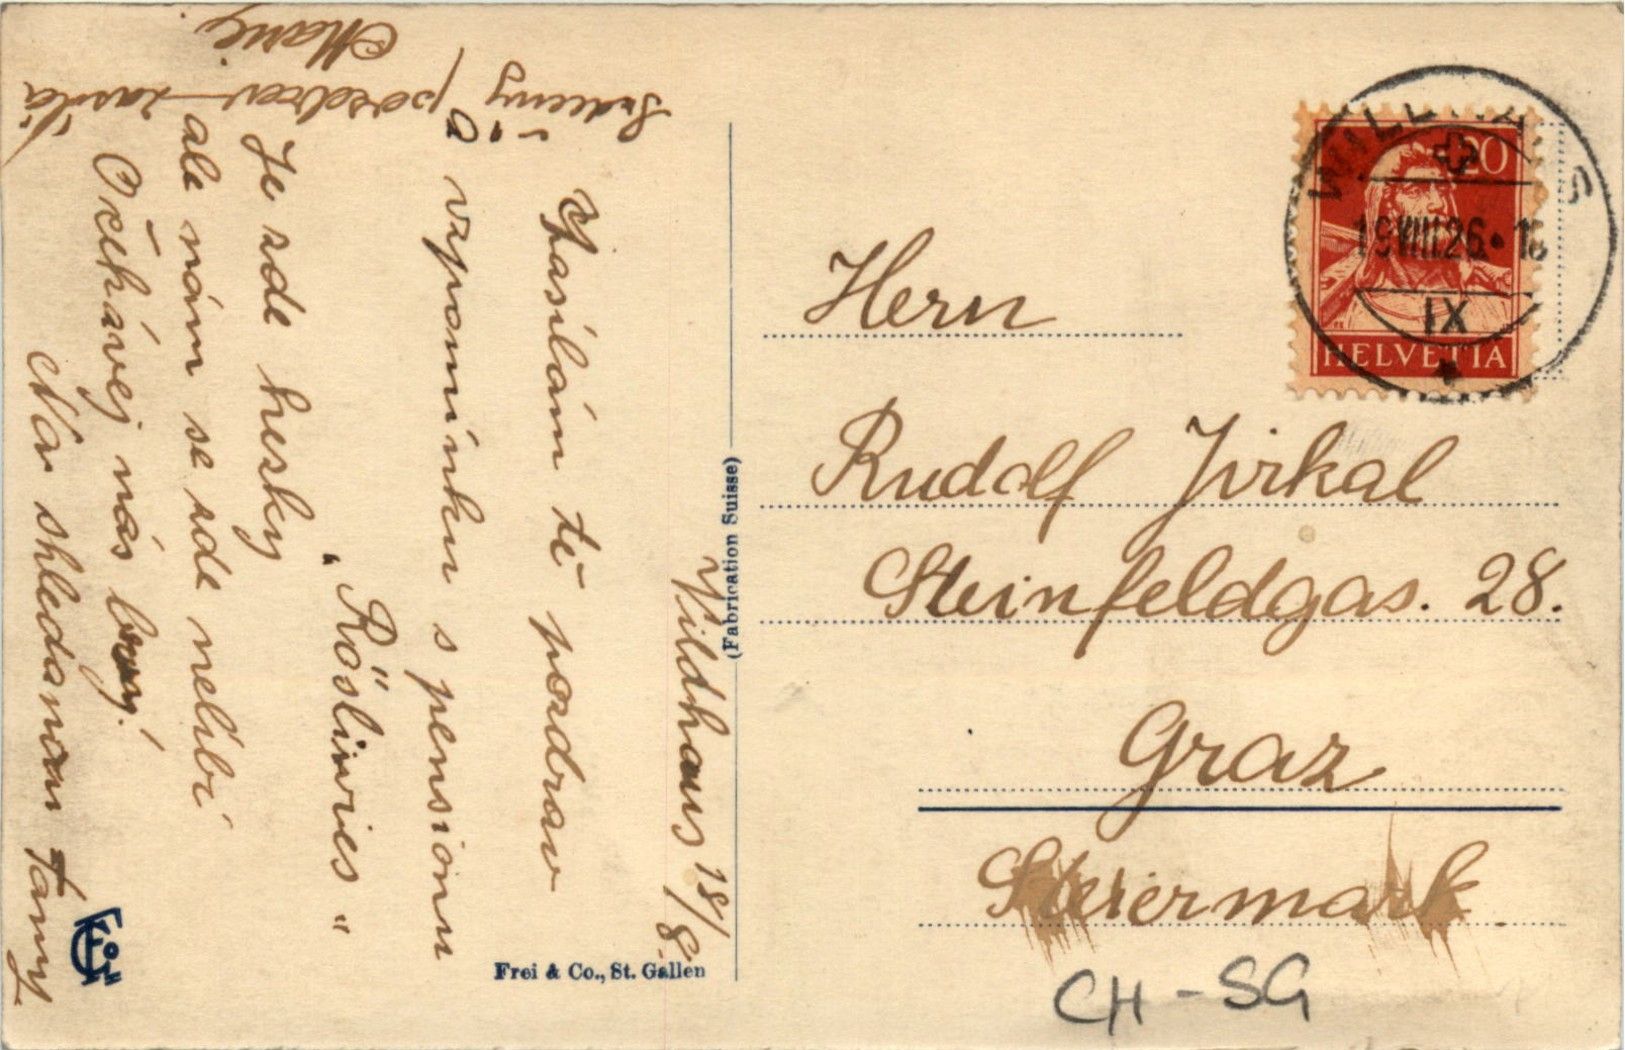 Wildhaus 18/8.
Zasílám ti pozdrav
a vzpomínku s pensionu
"Röslinries"
Je zde hezky
ale nám se zde nelíbí
Očekávej nás brzy.
Na shledanou
Srdečný pozdrav zasílá
Marie
(Fabrication Suisse)
Frei & Co., St. Gallen
Hern
Rudolf Jirkal
Steinfeldgas. 28.
Graz
Steiermark
CH-SG
20
19.VIII.26. 18
IX
HELVETIA